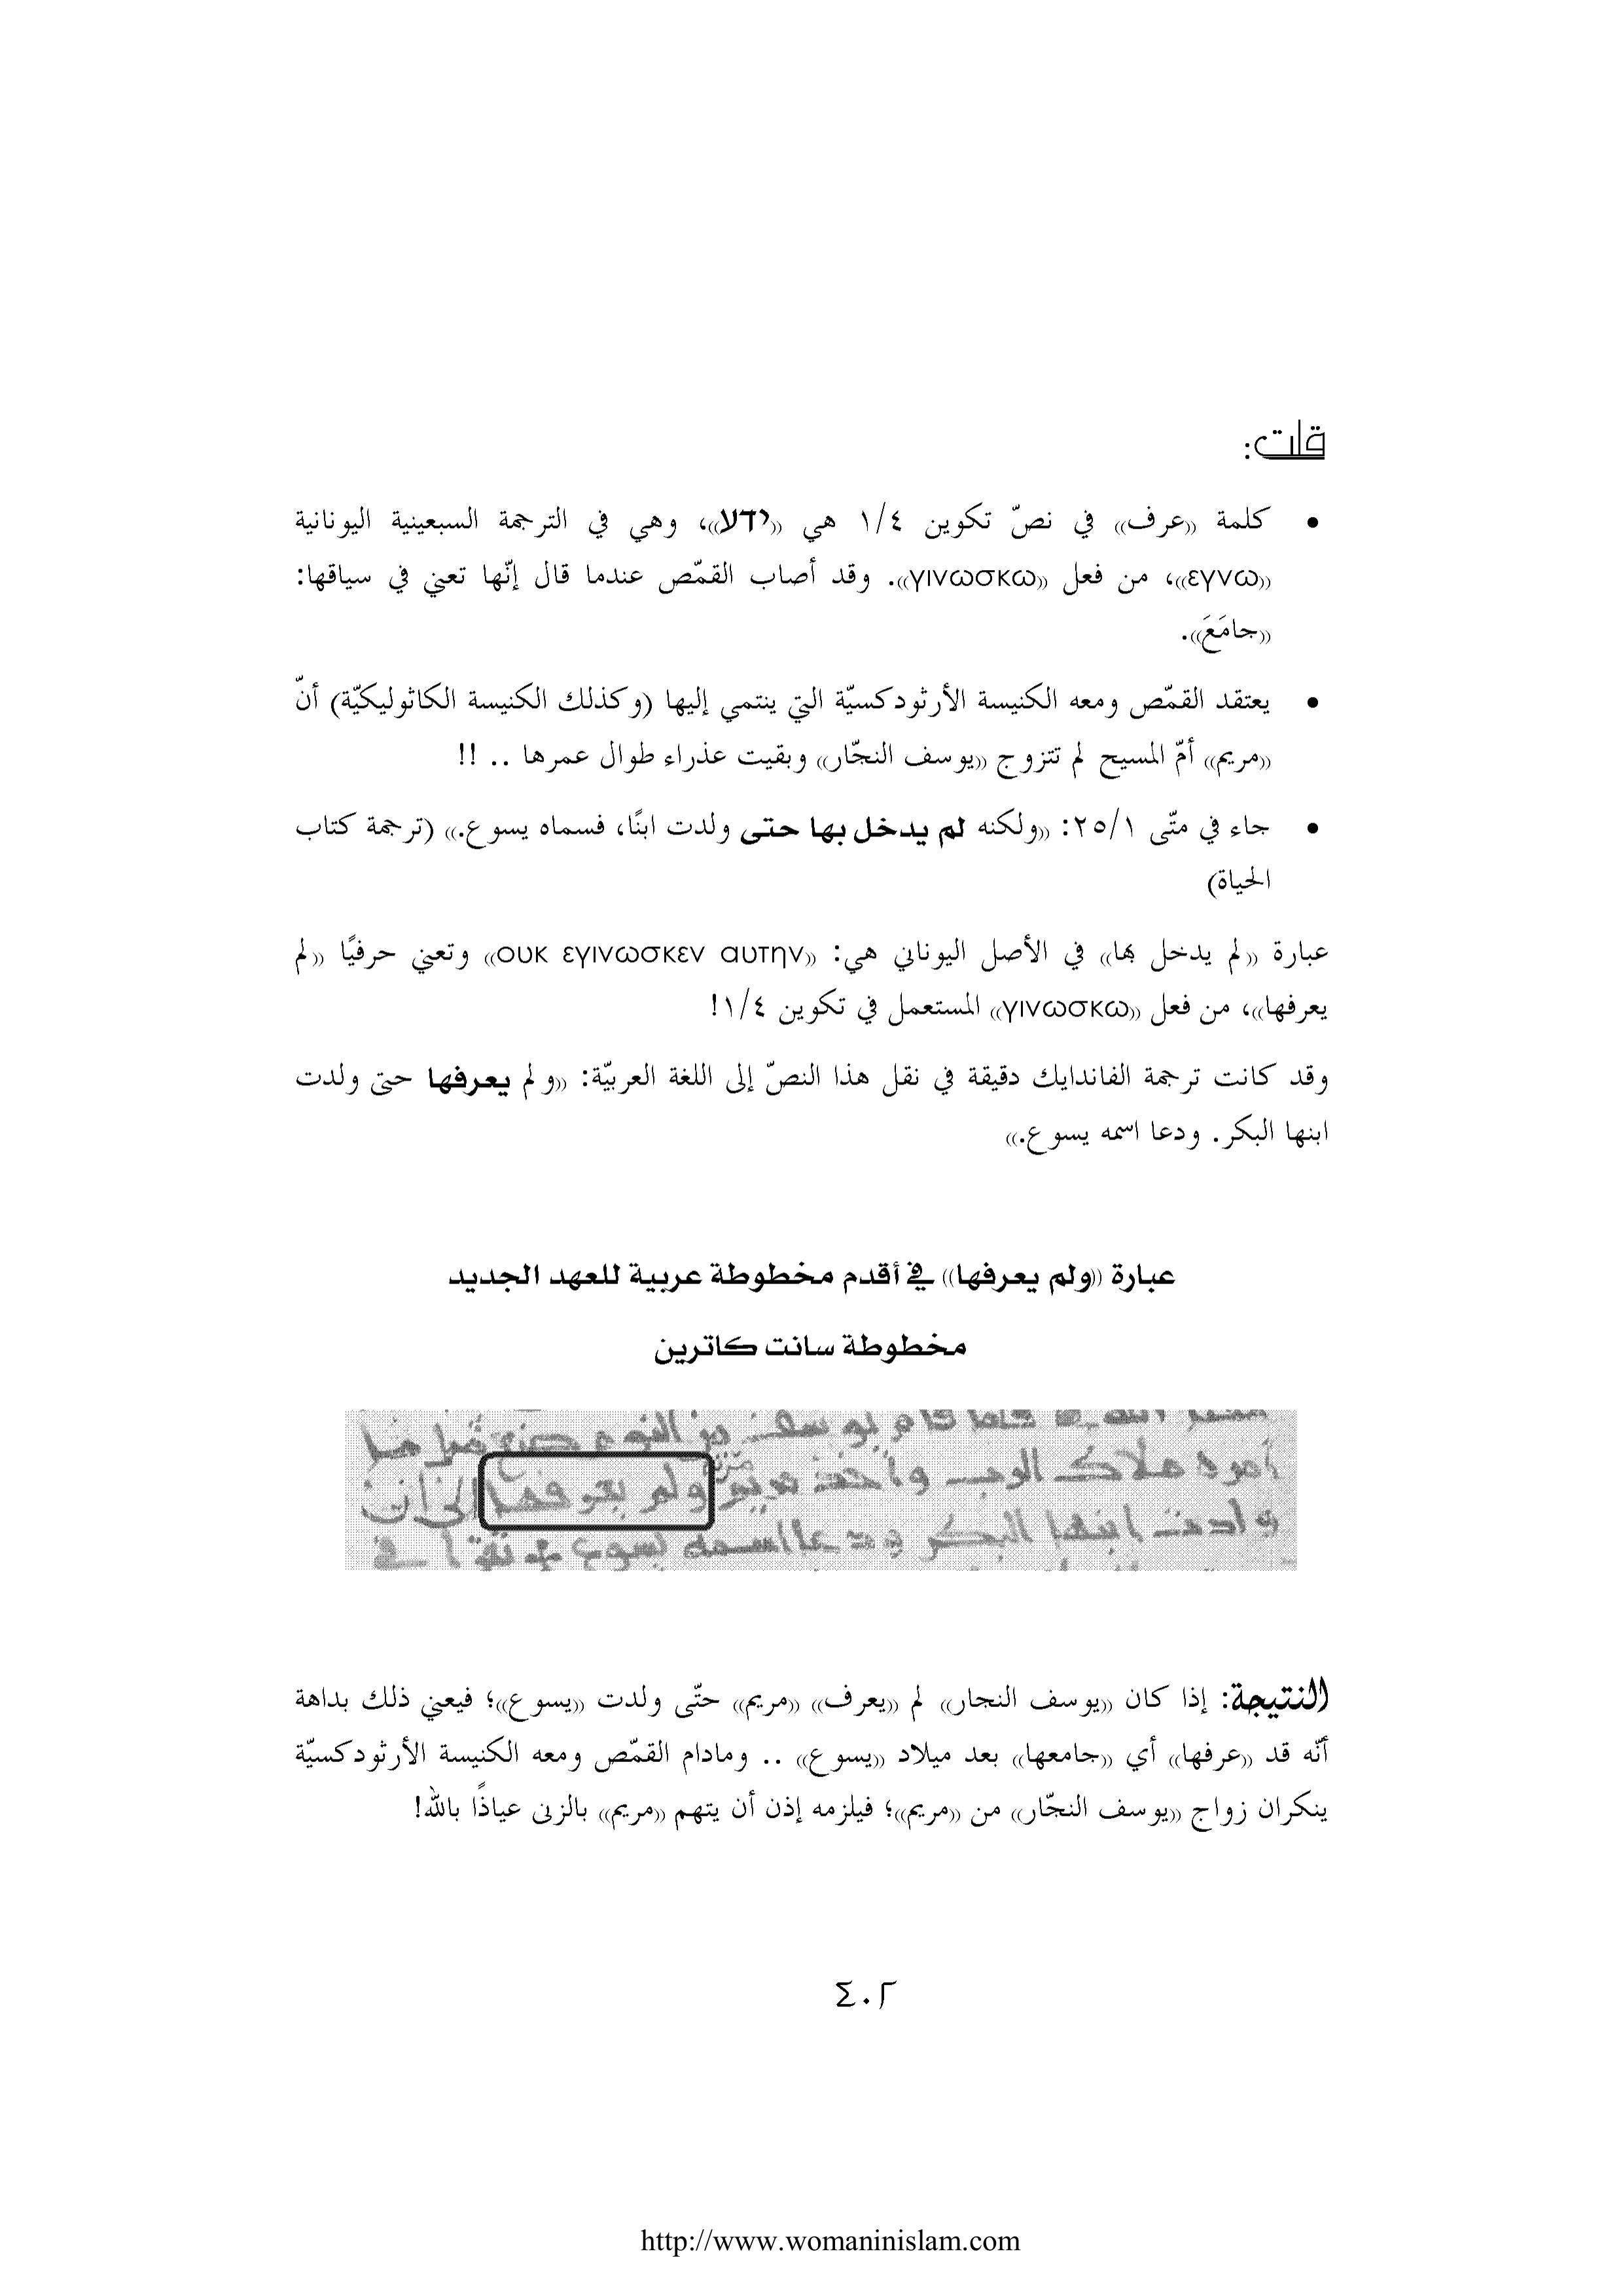 قلت:
• كلمة «عرف» في نصّ تكوين ٤/١ هي «ידע»، وهي في الترجمة السبعينية اليونانية
«εγνω»، من فعل «γινωσκω». وقد أصاب القمّص عندما قال إنّها تعني في سياقها:
«جامَعَ».
• يعتقد القمّص ومعه الكنيسة الأرثودكسيّة التي ينتمي إليها (وكذلك الكنيسة الكاثوليكيّة) أنّ
«مريم» أمّ المسيح لم تتزوج «يوسف النجّار» وبقيت عذراء طوال عمرها .. !!
• جاء في متّى ٢٥/١: «ولكنه لم يدخل بها حتى ولدت ابنًا، فسماه يسوع.» (ترجمة كتاب
الحياة)
عبارة «لم يدخل بها» في الأصل اليوناني هي: «ουκ εγινωσκεν αυτην» وتعني حرفيًا «لم
يعرفها»، من فعل «γινωσκω» المستعمل في تكوين ٤/١!
وقد كانت ترجمة الفاندايك دقيقة في نقل هذا النصّ إلى اللغة العربيّة: «ولم يعرفها حتى ولدت
ابنها البكر. ودعا اسمه يسوع.»
عبارة «ولم يعرفها» في أقدم مخطوطة عربية للعهد الجديد
مخطوطة سانت كاترين
يوسف من النوم صنع
امره ملاك الرب واخذ مريم ولم يعرفها الى ان
ولدت ابنها البكر ودعا اسمه يسوع
النتيجة: إذا كان «يوسف النجار» لم «يعرف» «مريم» حتّى ولدت «يسوع»؛ فيعني ذلك بداهة
أنّه قد «عرفها» أي «جامعها» بعد ميلاد «يسوع» .. ومادام القمّص ومعه الكنيسة الأرثودكسيّة
ينكران زواج «يوسف النجّار» من «مريم»؛ فيلزمه إذن أن يتهم «مريم» بالزنى عياذًا بالله!
٤٠٢
http://www.womaninislam.com